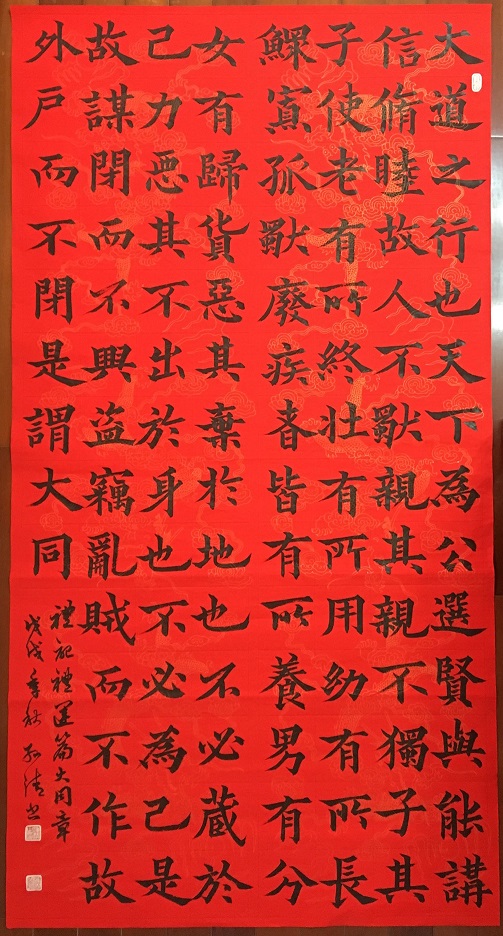 大道之行也天下為公選賢與能講
信脩睦故人不獨親其親不獨子其
子使老有所終壯有所用幼有所長
鰥寡孤獨廢疾者皆有所養男有分
女有歸貨惡其棄於地也不必藏於
己力惡其不出於身也不必為己是
故謀閉而不興盜竊亂賊而不作故
外戶而不閉是謂大同
禮記禮運篇大同章
戊戌季秋